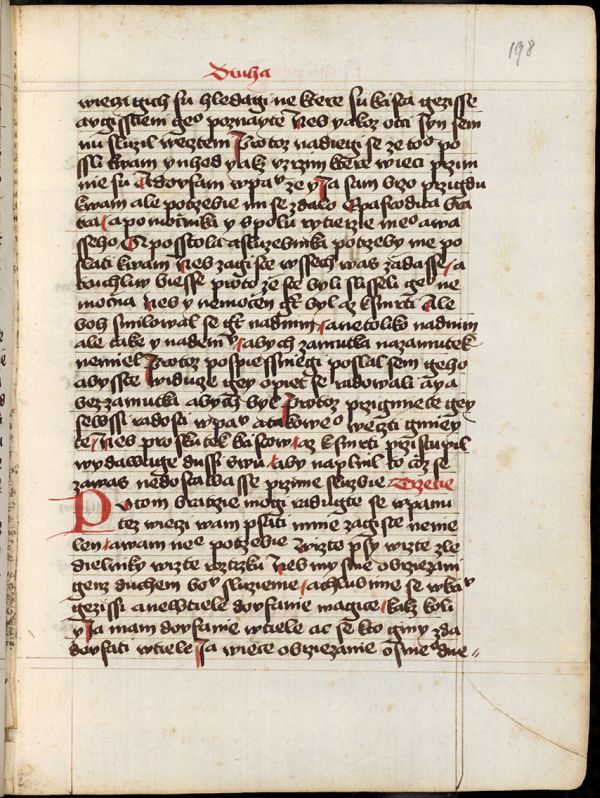 198
Druha
wieczi gich su hledagi ne ktere su krista gezisse
a zgisstiem geo poznayte nes yakoz otci syn sem
nu sluzil wezteni Protoz nadiegi se ze toº po
ssli kwam y nhed yakz vzrzim ktere wieci przi
mie su A dovfam w paª ze y Ja sam brzo przigdu
kwam ale potrzebie mi se zdalo Epafrodita bra
tra a pomocnika y spolu rytierzie meº a wa
sseho A posstola a sluzebnika potrzeby me po
slati kwam nes zagiste wssech was zadasse a
truchliw biesse proto ze ste byli slisseli geº ne
mocna nes y nemocen gt byl az k smrti Ale
boh smilowal se gt nad nim a netoliko nad nim
ale take y nademu abych zamutka na zamutek
nemiel Protoz pospiessniegi poslal sem geho
abysste widuze gey opiet se radowali a ya
bez zamutka abych byl Protoz przigmiete gey
se wssi radosti w paª a takoweº w ezti gmiey
te nes pro skutek kristow az k smrti przistupil
wydawage dussi swu aby naplnil to coz se
zawas nedostawasse przi me sluzbie Trzetie
Potom bratrzie mogi radugte se w panu
tez wieczi wam psati mnie zagiste neme
len a wam neº potrzebie wizte psy wizte zle
dielniky wizte roztrzku nes my sme obrziezani
genz duchem boº sluzieme a chlubime se w kª
gezissi a ne w tiele dovfanie magice kakz koli
y Ja mam dovfanie w tiele ac se kto giny zda
dovfati w tiele Ja wiece obrziezanie osmeº dne